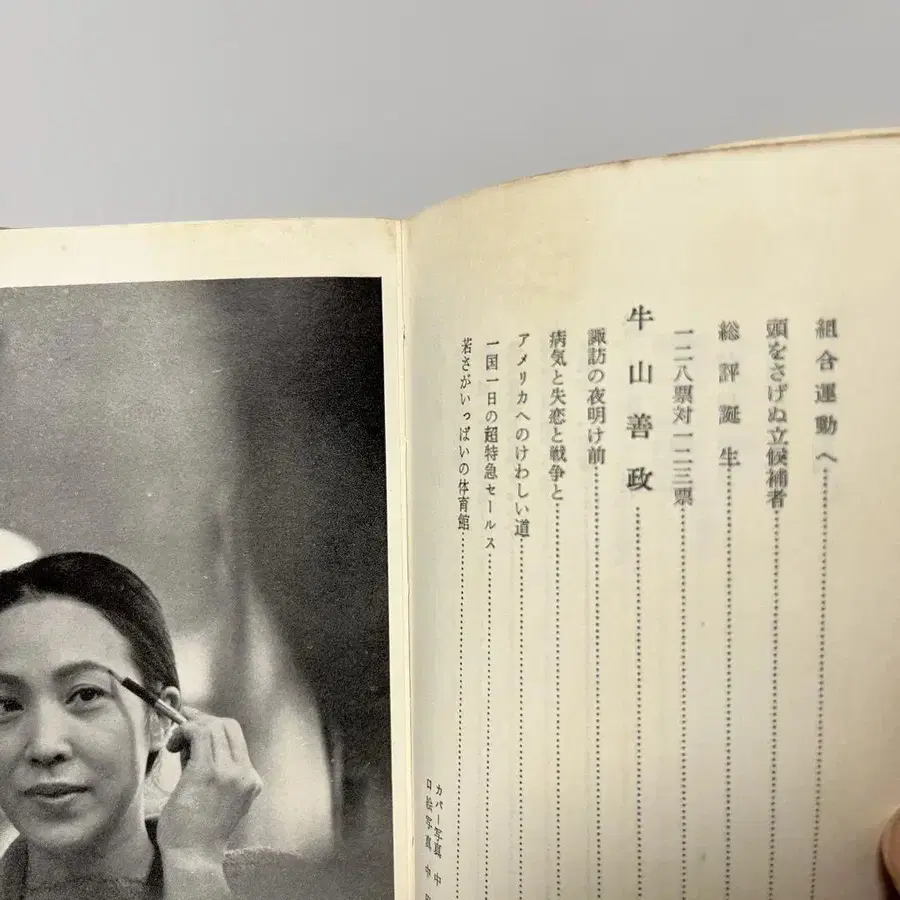 組合運動へ
頭をさげぬ立候補者
総評誕生
一二八票対一二三票
牛山善政
諏訪の夜明け前
病気と失恋と戦争と
アメリカへのけわしい道
一国一日の超特急セールス
若さがいっぱいの体育館
カバー写真 中
口絵写真 中